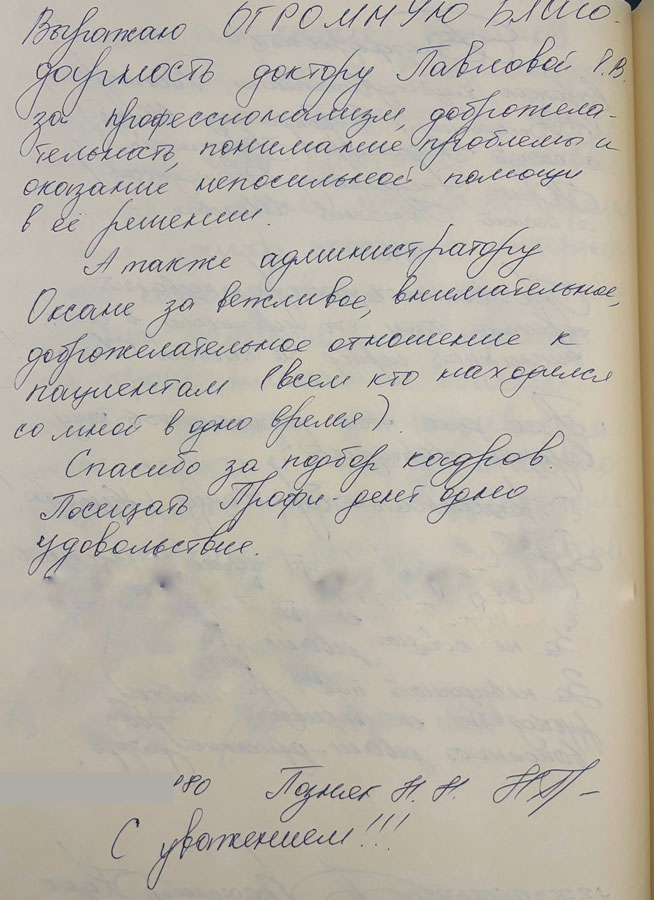 Выражаю ОГРОМНУЮ БЛАГО-
дарность доктору Павловой Р.В.
за профессионализм, доброжела-
тельность, понимание проблемы и
оказание непосильной помощи
в её решении.
А также администратору
Оксане за вежливое, внимательное,
доброжелательное отношение к
пациентам (всем кто находился
со мной в одно время).
Спасибо за подбор кадров.
Посещать Профи-дент одно
удовольствие.
80 Позняк Н.Н.
С уважением!!!